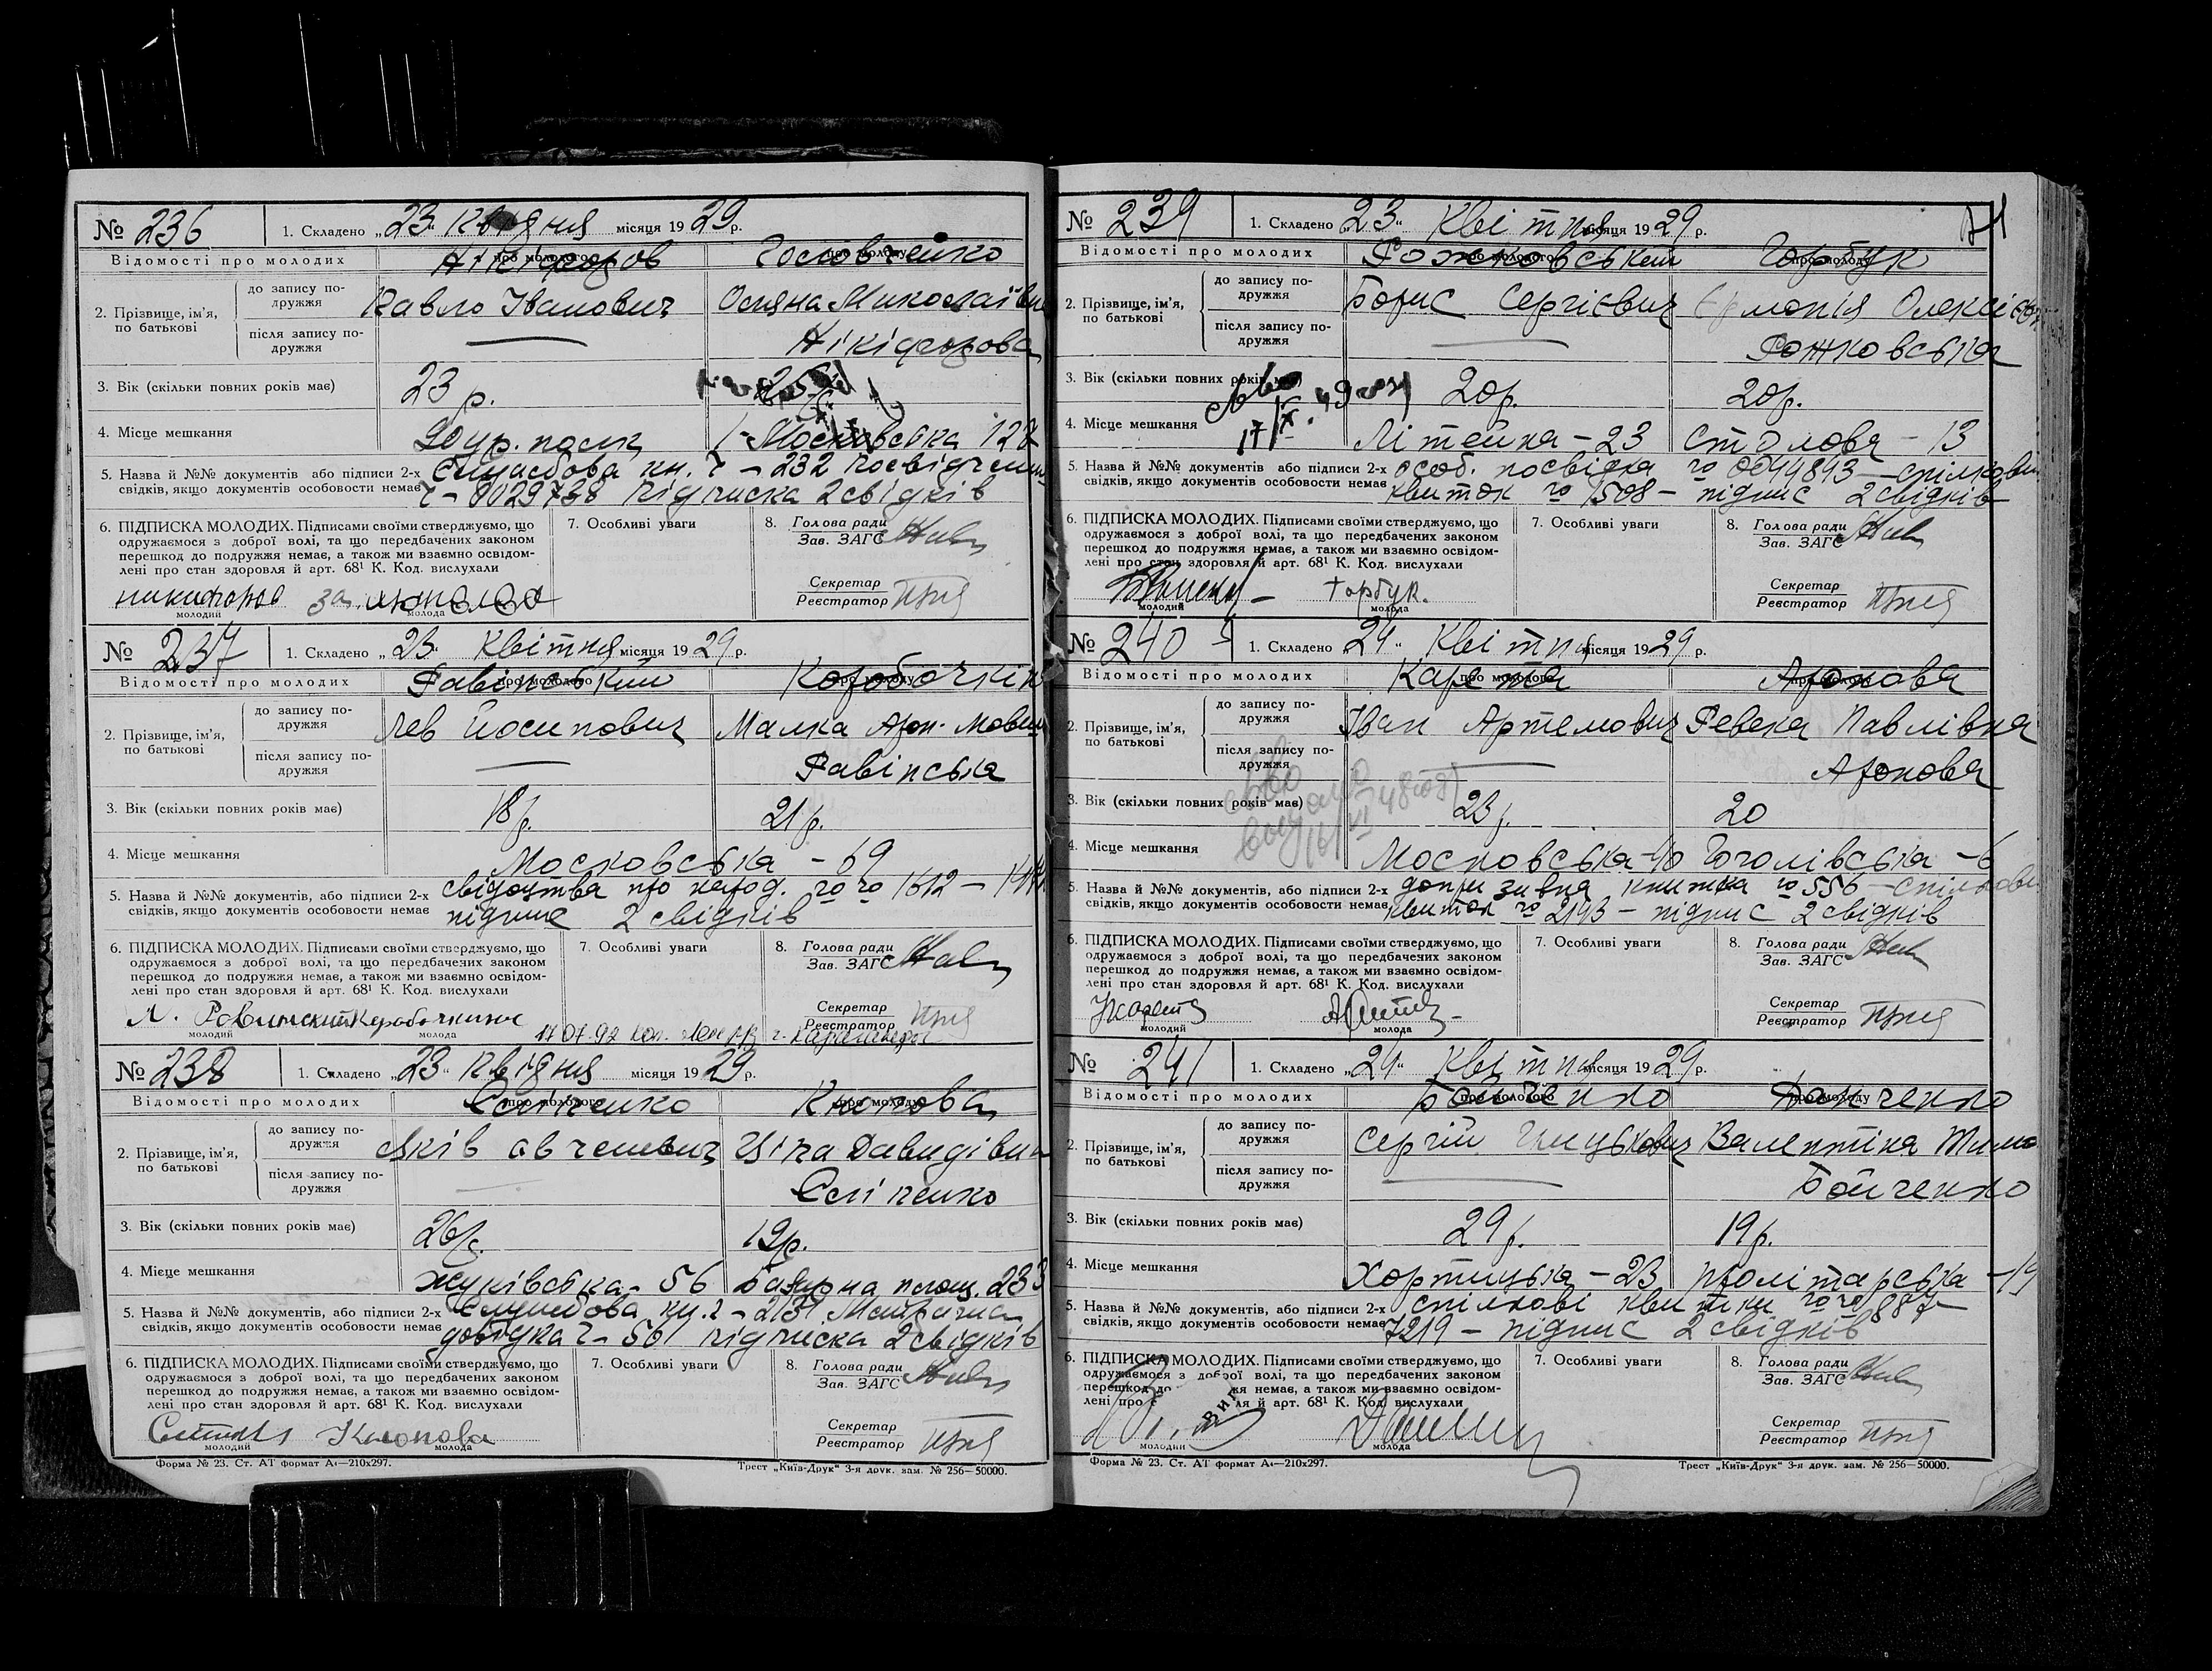 № 236 1. Складено „23" Квітня місяця 1929 р.
Відомості про молодих про молодого про молоду
Нікіфоров Головченко
2. Прізвище, ім'я, по батькові
до запису по-
дружжя
Павло Іванович
після запису по-
дружжя
Нікіфорова
3. Вік (скільки повних років має) 23 р.
4. Місце мешкання Московська 127
5. Назва й №№ документів або підписи 2-х
свідків, якщо документів особовости немає
Службова кн. ч – 232 Посвідчення
ч – 0029738 Підписка 2 свідків
6. ПІДПИСКА МОЛОДИХ. Підписами своїми стверджуємо, що
одружаємося з доброї волі, та що передбачених законом
перешкод до подружжя немає, а також ми взаємно освідом-
лені про стан здоровля й арт. 68¹ К. Код. вислухали
молодий молода
7. Особливі уваги
8. Голова ради
Зав. ЗАГС
Секретар
Реєстратор
№ 237 1. Складено „23" Квітня місяця 1929 р.
Відомості про молодих про молодого про молоду
Равінський
2. Прізвище, ім'я, по батькові
до запису по-
дружжя
Лев Йосипович Малка
після запису по-
дружжя
Равінська
3. Вік (скільки повних років має) 18 р. 21 р.
4. Місце мешкання Московська – 69
5. Назва й №№ документів або підписи 2-х
свідків, якщо документів особовости немає
свідоцтва про народ. № № 1612 –
підпис 2 свідків
6. ПІДПИСКА МОЛОДИХ. Підписами своїми стверджуємо, що
одружаємося з доброї волі, та що передбачених законом
перешкод до подружжя немає, а також ми взаємно освідом-
лені про стан здоровля й арт. 68¹ К. Код. вислухали
Л. Равинский
молодий молода
17 07.92
7. Особливі уваги
8. Голова ради
Зав. ЗАГС
Секретар
Реєстратор
№ 238 1. Складено „23" Квітня місяця 1929 р.
Відомості про молодих про молодого про молоду
2. Прізвище, ім'я, по батькові
до запису по-
дружжя
Яків Давидівна
після запису по-
дружжя
3. Вік (скільки повних років має) 26 р. 19 р.
4. Місце мешкання Жуківська – 56 Базарна площ. 23
5. Назва й №№ документів, або підписи 2-х
свідків, якщо документів особовости немає
Службова кн. ч – 2131
довідка ч – 56 підписка 2 свідків
6. ПІДПИСКА МОЛОДИХ. Підписами своїми стверджуємо, що
одружаємося з доброї волі, та що передбачених законом
перешкод до подружжя немає, а також ми взаємно освідом-
лені про стан здоровля й арт. 68¹ К. Код. вислухали
молодий молода
7. Особливі уваги
8. Голова ради
Зав. ЗАГС
Секретар
Реєстратор
Форма № 23. Ст. АТ формат А₄—210х297. Трест „Київ-Друк" 3-я друк. зам. № 256—50000.
№ 239 1. Складено „23" Квітня місяця 1929 р.
Відомості про молодих про молодого про молоду
Рожковський Горбук
2. Прізвище, ім'я, по батькові
до запису по-
дружжя
Борис Сергієвич
після запису по-
дружжя
Рожковська
3. Вік (скільки повних років має) 20 р. 20 р.
4. Місце мешкання Літейна – 23 Столова – 13
5. Назва й №№ документів або підписи 2-х
свідків, якщо документів особовости немає
особ. посвідка № 0044893 – спілковий
квиток № 1508 – підпис 2 свідків
6. ПІДПИСКА МОЛОДИХ. Підписами своїми стверджуємо, що
одружаємося з доброї волі, та що передбачених законом
перешкод до подружжя немає, а також ми взаємно освідом-
лені про стан здоровля й арт. 68¹ К. Код. вислухали
Горбук.
молодий молода
7. Особливі уваги
8. Голова ради
Зав. ЗАГС
Секретар
Реєстратор
№ 240 1. Складено „24" Квітня місяця 1929 р.
Відомості про молодих про молодого про молоду
Карета Аронова
2. Прізвище, ім'я, по батькові
до запису по-
дружжя
Іван Артемович Ревека Павлівна
після запису по-
дружжя
Аронова
3. Вік (скільки повних років має) 23 р. 20
4. Місце мешкання Московська – 40 Гоголівська – 6
5. Назва й №№ документів, або підписи 2-х
свідків, якщо документів особовости немає
допризивна книжка № 556 – спілковий
квиток № 2193 – підпис 2 свідків
6. ПІДПИСКА МОЛОДИХ. Підписами своїми стверджуємо, що
одружаємося з доброї волі, та що передбачених законом
перешкод до подружжя немає, а також ми взаємно освідом-
лені про стан здоровля й арт. 68¹ К. Код. вислухали
молодий молода
7. Особливі уваги
8. Голова ради
Зав. ЗАГС
Секретар
Реєстратор
№ 241 1. Складено „24" Квітня місяця 1929 р.
Відомості про молодих про молодого про молоду
Бойченко Данченко
2. Прізвище, ім'я, по батькові
до запису по-
дружжя
Сергій Валентіна
після запису по-
дружжя
Бойченко
3. Вік (скільки повних років має) 29 р. 19 р.
4. Місце мешкання Хортицька – 23 Пролітарська – 19
5. Назва й №№ документів, або підписи 2-х
свідків, якщо документів особовости немає
спілкові квитки № № 887
7219 – підпис 2 свідків
6. ПІДПИСКА МОЛОДИХ. Підписами своїми стверджуємо, що
одружаємося з доброї волі, та що передбачених законом
перешкод до подружжя немає, а також ми взаємно освідом-
лені про стан здоровля й арт. 68¹ К. Код. вислухали
молодий молода
7. Особливі уваги
8. Голова ради
Зав. ЗАГС
Секретар
Реєстратор
Форма № 23. Ст. АТ формат А₄—210х297. Трест „Київ-Друк" 3-я друк. зам. № 256—50000.